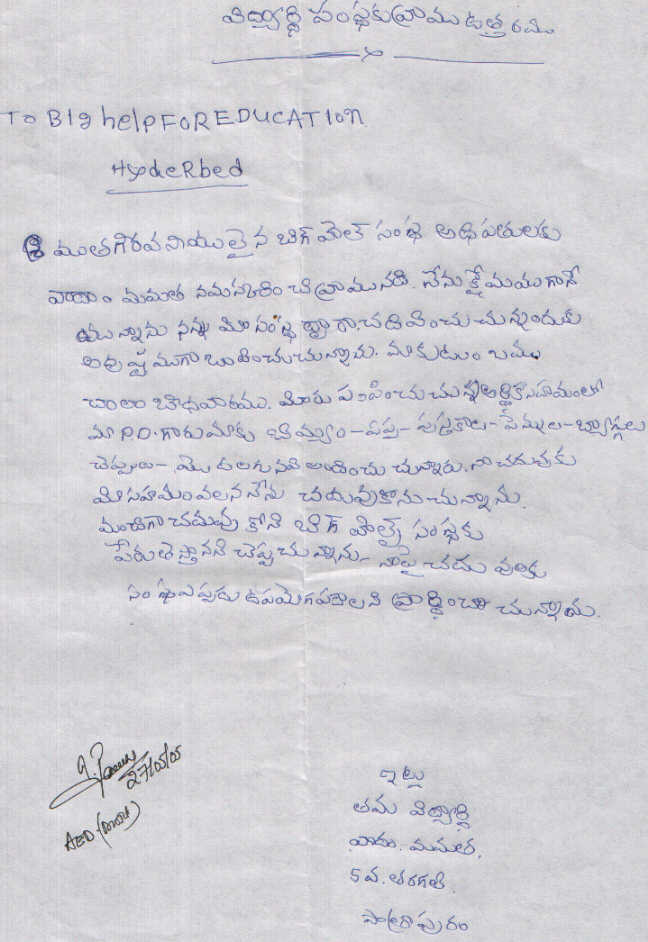 విద్యార్థి సంస్థకు వ్రాయు ఉత్తరము
To BIg help FOR EDUCATIon
HydeRbed
గౌరవనీయులైన బిగ్ హెల్ప్ సంస్థ అధిపతులకు
మమత నమస్కరించి వ్రాయునది. నేను క్షేమముగానే
యున్నాను నన్ను మీ సంస్థ ద్వారా చదివించుచున్నందుకు
అదృష్టముగా బావించుచున్నాను. మా కుటుంబము
చాలా బీదవారము. మీరు పంపించుచున్న ఆర్థిక సహాయంతో
మా P.D. గారు మాకు బియ్యం - పప్పు - పుస్తకాల - పెన్నుల - బ్యాగ్లు
చెప్పులు - మొదలగునవి అందించుచున్నారు. నా చదువుకు
మీ సహాయం వలన నేను చదువుకొనుచున్నాను.
మంచిగా చదువుకోని బిగ్ హెల్ప్ సంస్థకు
పేరు తెస్తానని చెప్పుచున్నాను - నాపై చదువులకు
సంస్థ ఎప్పుడు ఉపయోగపడాలని ప్రార్థించుచున్నాను.
27/05/05
AED.
ఇట్లు
తమ విద్యార్థి
మమత.
5 వ. తరగతి.
పురం